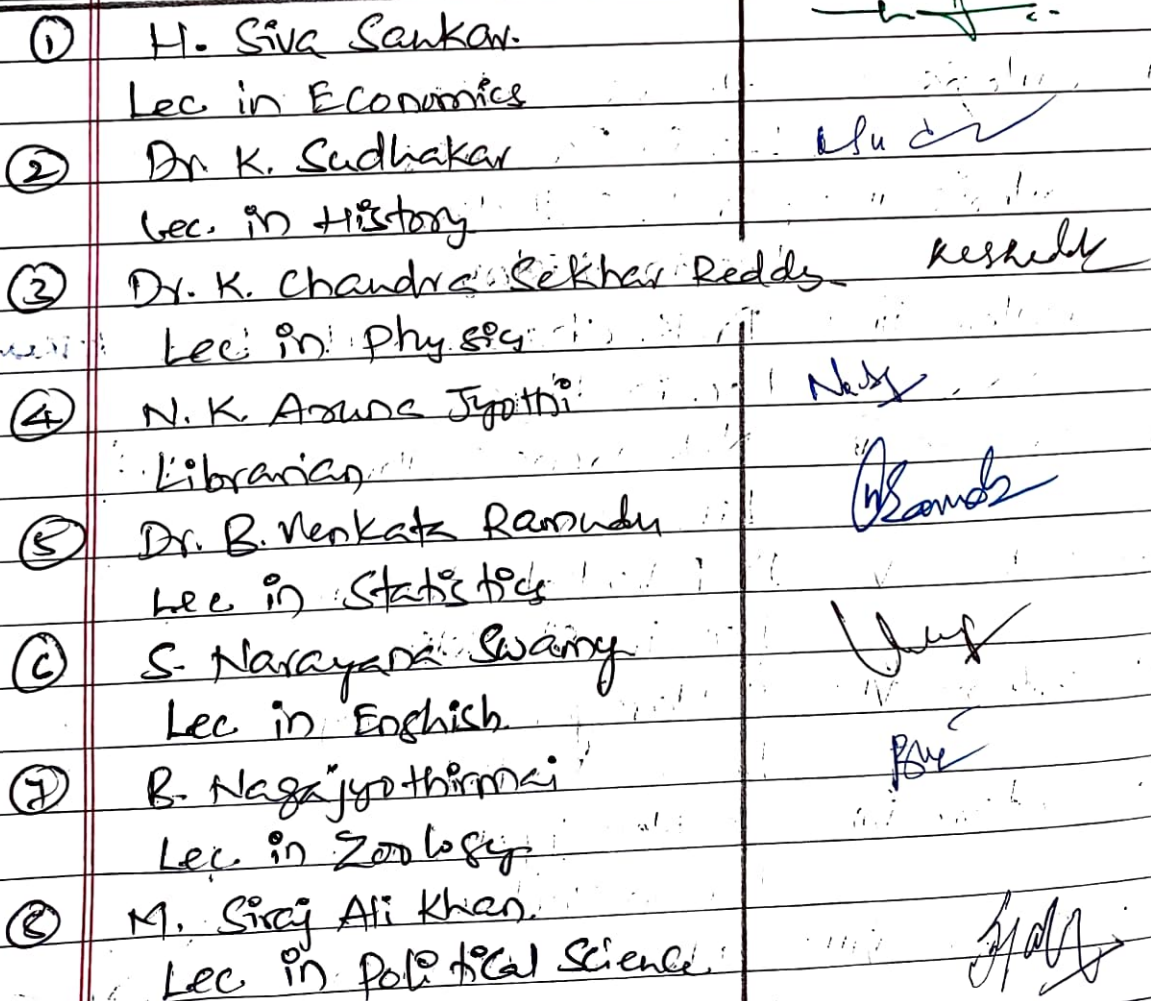 ① H. Siva Sankar.
Lec in Economics
② Dr. K. Sudhakar
Lec. in History
③ Dr. K. Chandra Sekhar Reddy
Lec in Physics
④ N. K. Aruna Jyothi
Librarian
⑤ Dr. B. Venkata Ramudu
Lec in Statistics
⑥ S. Narayana Swamy
Lec in English
⑦ B. Nagajyothirmai
Lec in Zoology
⑧ M. Siraj Ali Khan.
Lec in Political Science